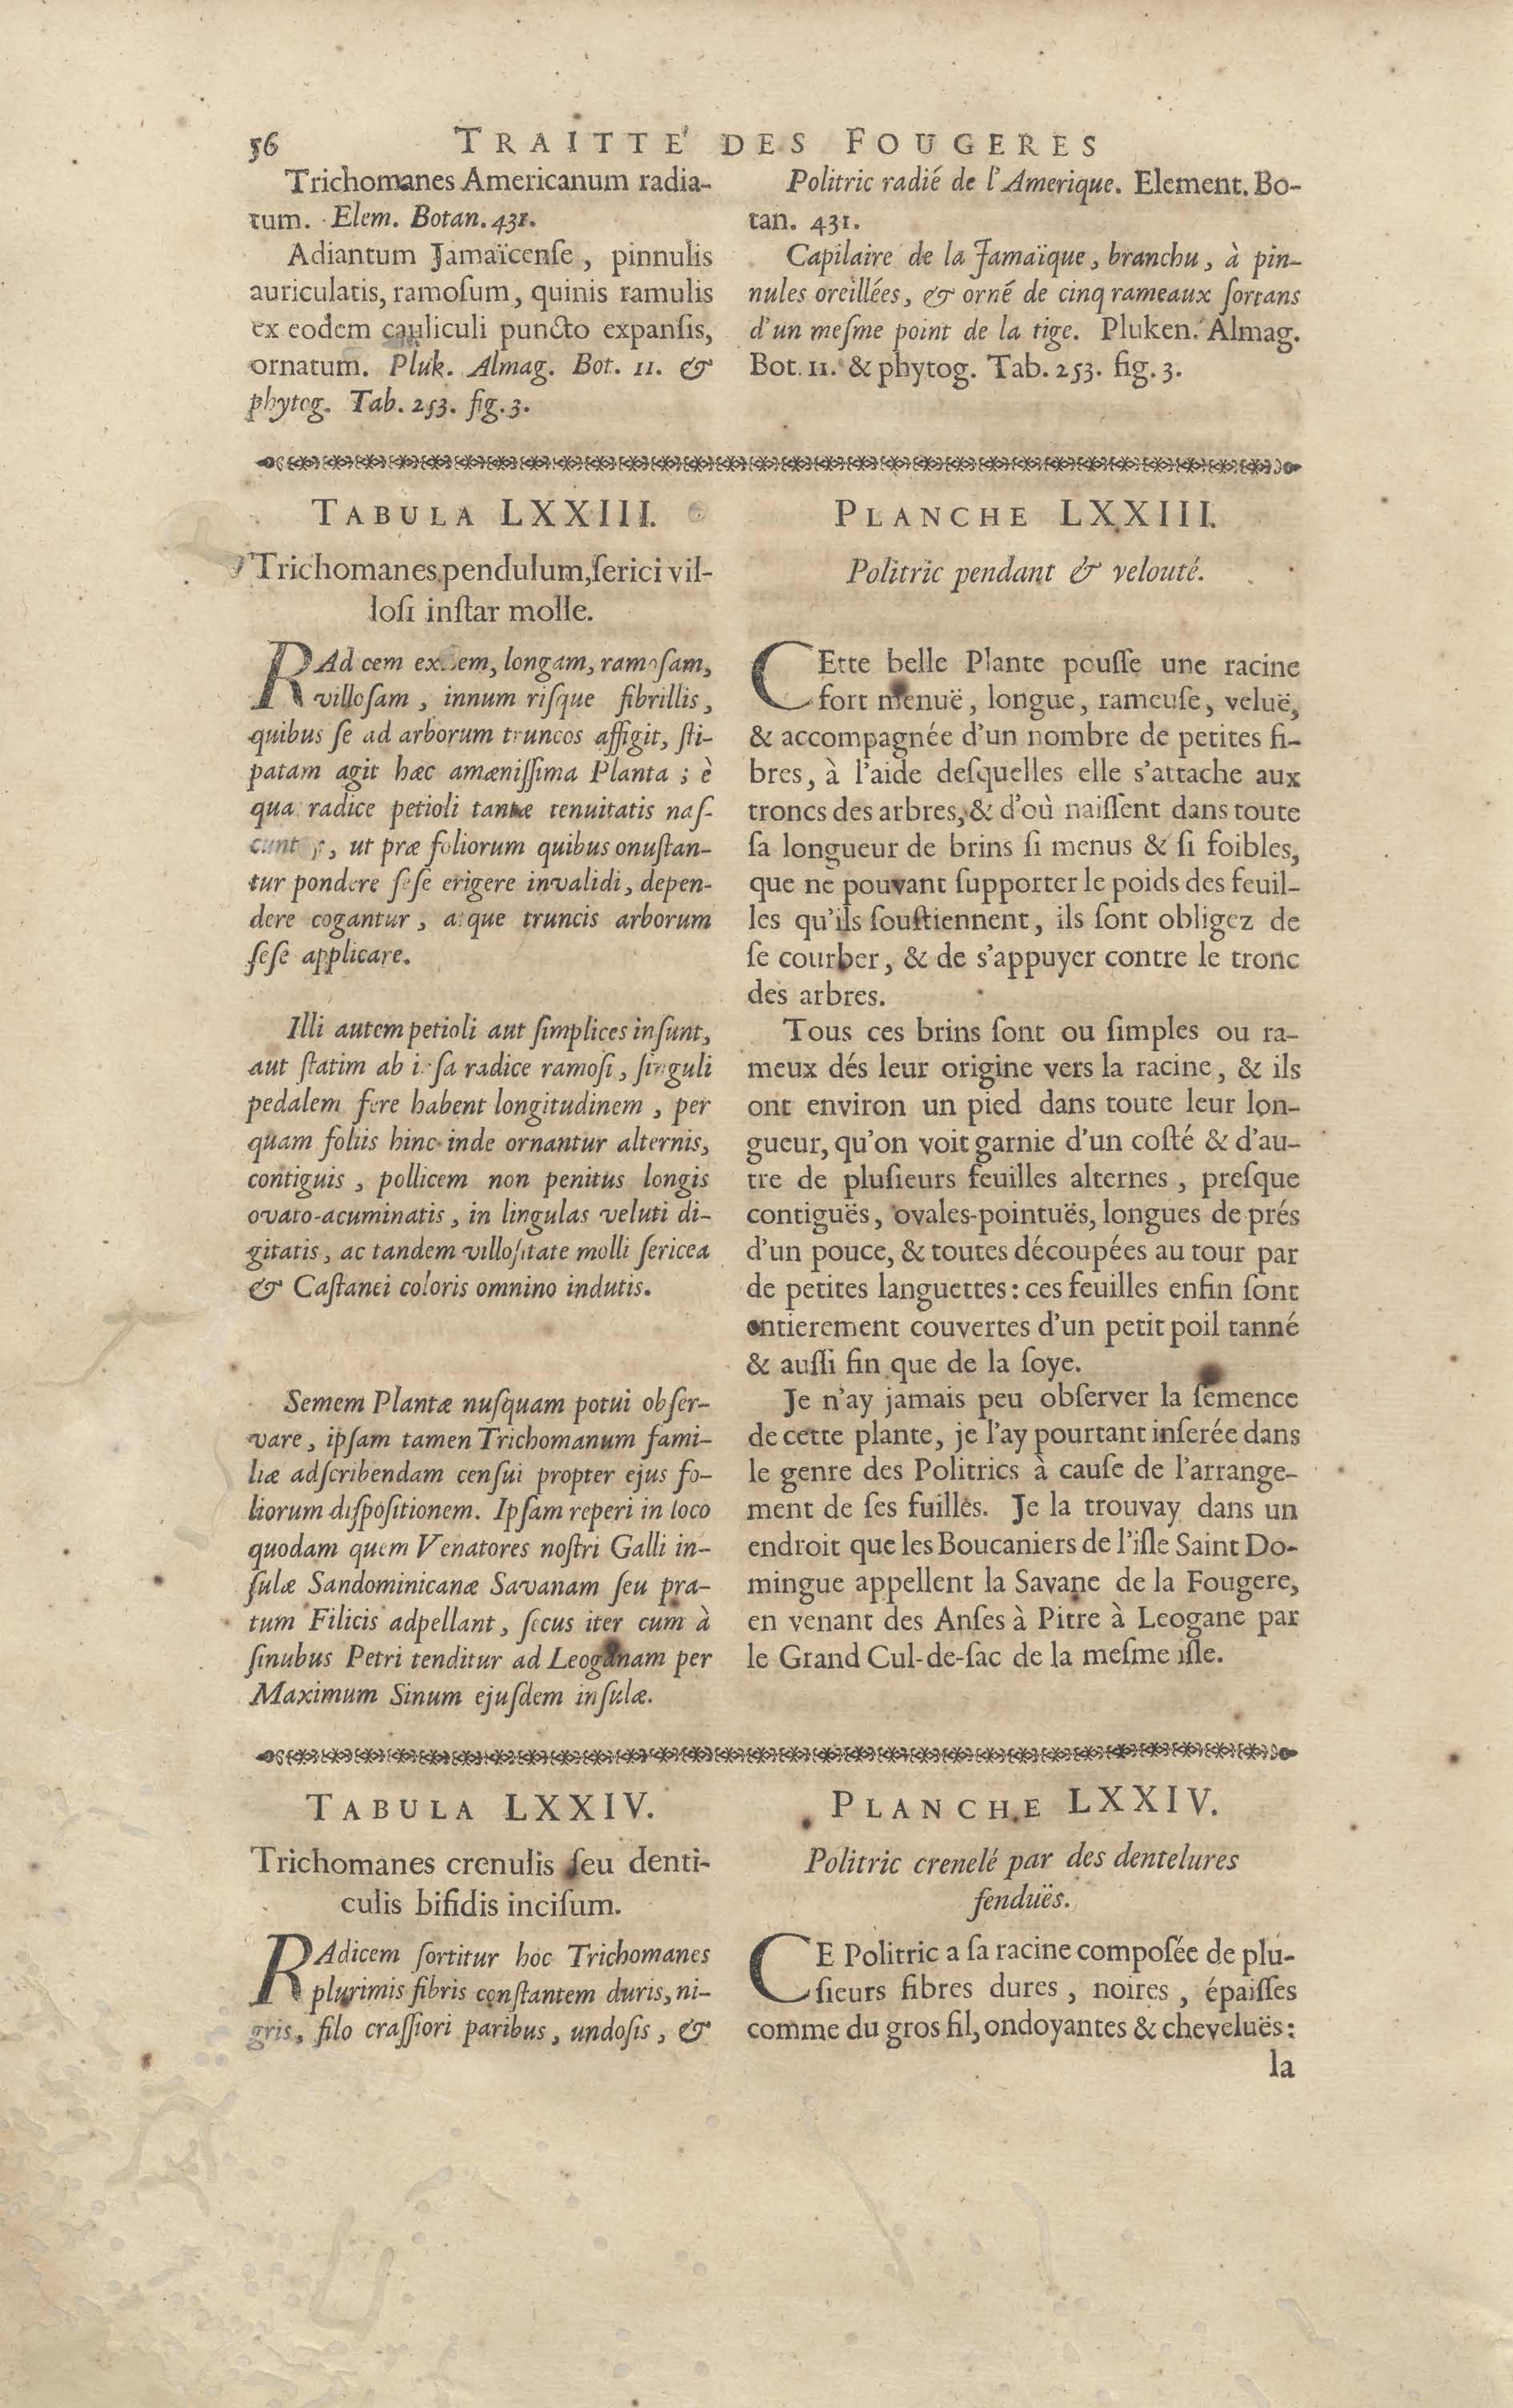 56 TRAITTE' DES FOUGERES
Trichomanes Americanum radia-
tum. Elem. Botan. 431.
Adiantum Jamaïcenſe, pinnulis
auriculatis, ramoſum, quinis ramulis
ex eodem cauliculi puncto expanſis,
ornatum. Pluk. Almag. Bot. 11. &
phytog. Tab. 253. fig. 3.
Politric radié de l'Amerique. Element. Bo-
tan. 431.
Capilaire de la Jamaïque, branchu, à pin-
nules oreillées, & orné de cinq rameaux ſortans
d'un meſme point de la tige. Pluken. Almag.
Bot. 11. & phytog. Tab. 253. fig. 3.
TABULA LXXIII.
Trichomanes pendulum, ſerici vil-
loſi inſtar molle.
RAd cem ex lem, longam, ramoſam,
villoſam, innum riſque fibrillis,
quibus ſe ad arborum truncos affigit, ſti-
patam agit hæc amæniſſima Planta; è
qua radice petioli tantæ tenuitatis naſ-
cunt r, ut præ foliorum quibus onuſtan-
tur pondere ſeſe erigere invalidi, depen-
dere cogantur, atque truncis arborum
ſeſe applicare.
Illi autem petioli aut ſimplices inſunt,
aut ſtatim ab ipſa radice ramoſi, ſinguli
pedalem fere habent longitudinem, per
quam foliis hinc inde ornantur alternis,
contiguis, pollicem non penitus longis
ovato-acuminatis, in lingulas veluti di-
gitatis, ac tandem villoſitate molli ſericea
& Caſtanei coloris omnino indutis.
Semem Plantæ nuſquam potui obſer-
vare, ipſam tamen Trichomanum fami-
liæ adſcribendam cenſui propter ejus fo-
liorum diſpoſitionem. Ipſam reperi in loco
quodam quem Venatores noſtri Galli in-
ſulæ Sandominicanæ Savanam ſeu pra-
tum Filicis adpellant, ſecus iter cum à
ſinubus Petri tenditur ad Leoganam per
Maximum Sinum ejuſdem inſulæ.
PLANCHE LXXIII.
Politric pendant & velouté.
CEtte belle Plante pouſſe une racine
fort menuë, longue, rameuſe, veluë,
& accompagnée d'un nombre de petites fi-
bres, à l'aide deſquelles elle s'attache aux
troncs des arbres, & d'où naiſſent dans toute
ſa longueur de brins ſi menus & ſi foibles,
que ne pouvant ſupporter le poids des feuil-
les qu'ils ſouſtiennent, ils ſont obligez de
ſe courber, & de s'appuyer contre le tronc
des arbres.
Tous ces brins ſont ou ſimples ou ra-
meux dés leur origine vers la racine, & ils
ont environ un pied dans toute leur lon-
gueur, qu'on voit garnie d'un coſté & d'au-
tre de pluſieurs feuilles alternes, preſque
contiguës, ovales-pointuës, longues de prés
d'un pouce, & toutes découpées au tour par
de petites languettes: ces feuilles enfin ſont
entierement couvertes d'un petit poil tanné
& auſſi fin que de la ſoye.
Je n'ay jamais peu obſerver la ſemence
de cette plante, je l'ay pourtant inſerée dans
le genre des Politrics à cauſe de l'arrange-
ment de ſes fuilles. Je la trouvay dans un
endroit que les Boucaniers de l'iſle Saint Do-
mingue appellent la Savane de la Fougere,
en venant des Anſes à Pitre à Leogane par
le Grand Cul-de-ſac de la meſme iſle.
TABULA LXXIV.
Trichomanes crenulis ſeu denti-
culis bifidis inciſum.
RAdicem ſortitur hoc Trichomanes
plurimis fibris conſtantem duris, ni-
gris, filo craſſiori paribus, undoſis, &
PLANCHE LXXIV.
Politric crenelé par des dentelures
fenduës.
CE Politric a ſa racine compoſée de plu-
ſieurs fibres dures, noires, épaiſſes
comme du gros fil, ondoyantes & cheveluës:
la